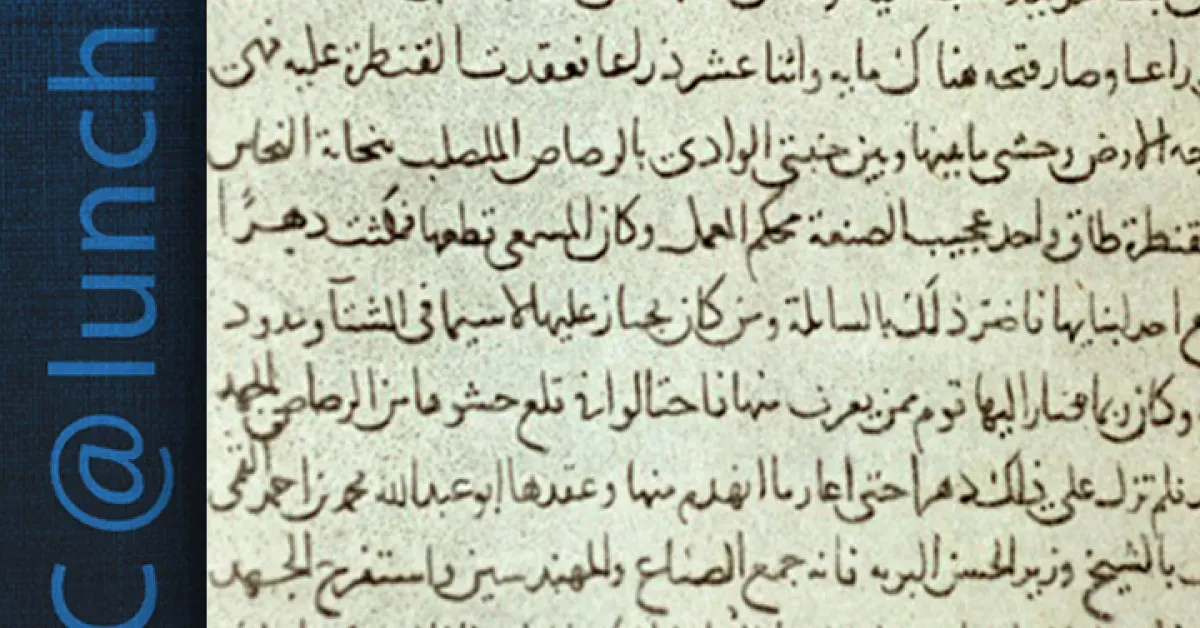 C@lunch
راعا وصار فتحه هناك مايه واثنا عشر ذراعا فعقدت القنطرة عليه فهى
الارض وحشى مابينها وبين جنبتى الوادى بالرصاص الملصلب بنحاتة النحاس
القنطرة طاق واحد عجيب الصنعة محكم العمل وكان المسمعى قطعها فمكثت دهرًا
احد لبنايها فاضر ذلك بالسابلة ومن كان يجتاز عليها لاسيما فى الشتآ ومدود
وكان ربما صار اليها قوم ممن يعرب منها فاحتالوا فى قلع حشوها من الرصاص بالجهد
فلم تزل على ذلك دهرا حتى اعار ما انهدم منها وعقدها ابو عبدالله محمد بن احمد القمى
بالشيخ وزير الحسن البويه فانه جمع الصناع والمهندسين واستفرح الجهد